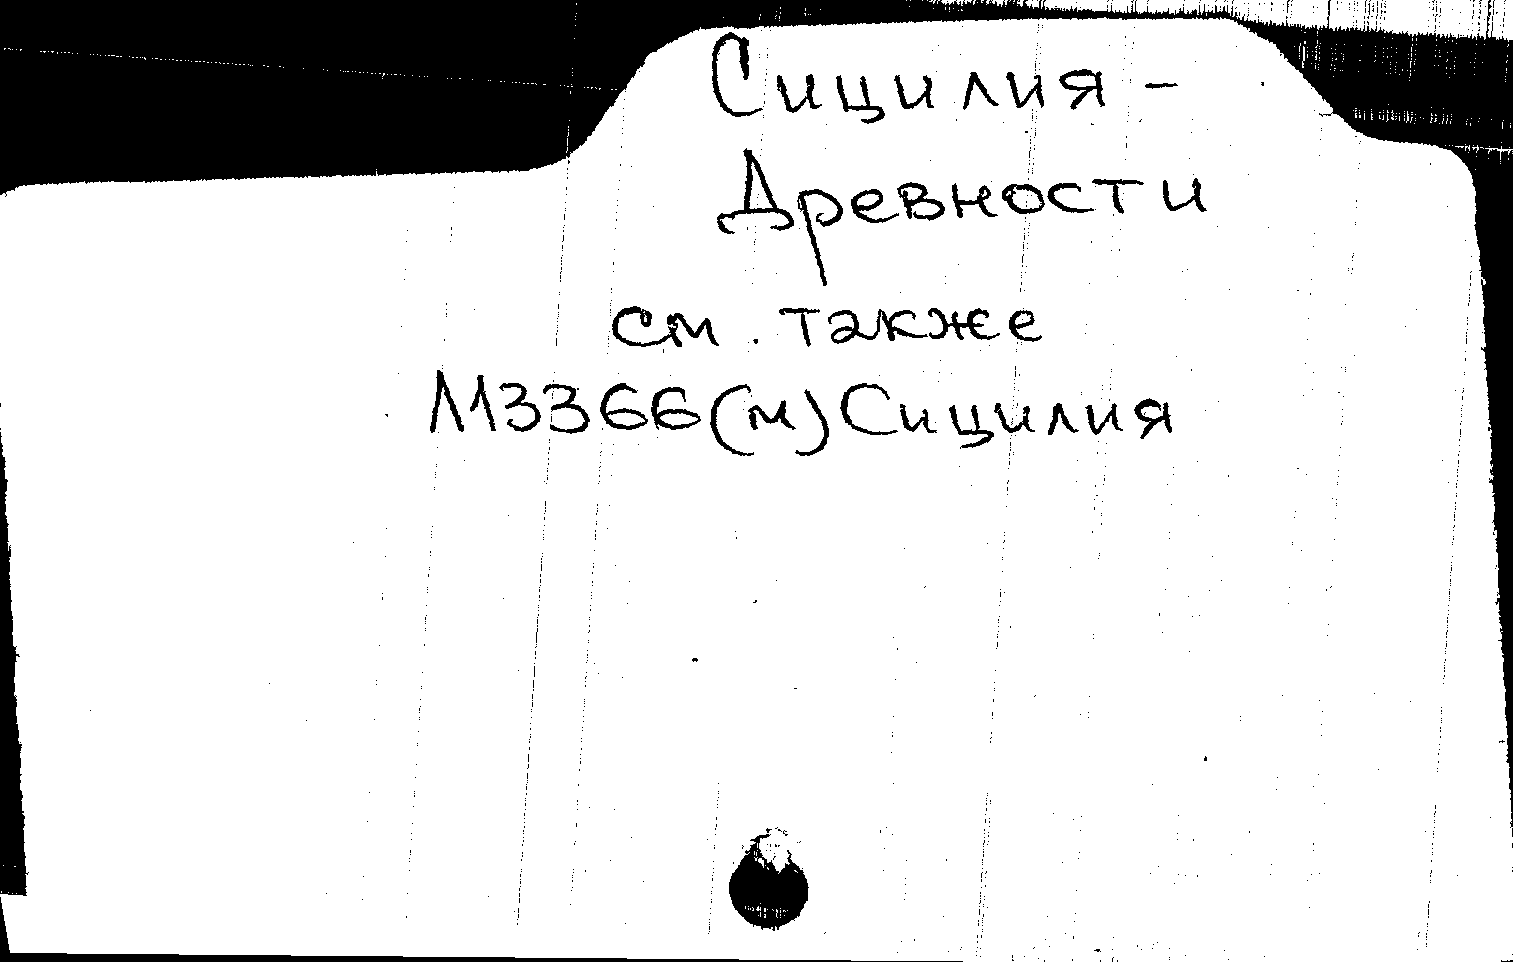 Сицилия -
Древности
см. также
Л13366(м) Сицилия